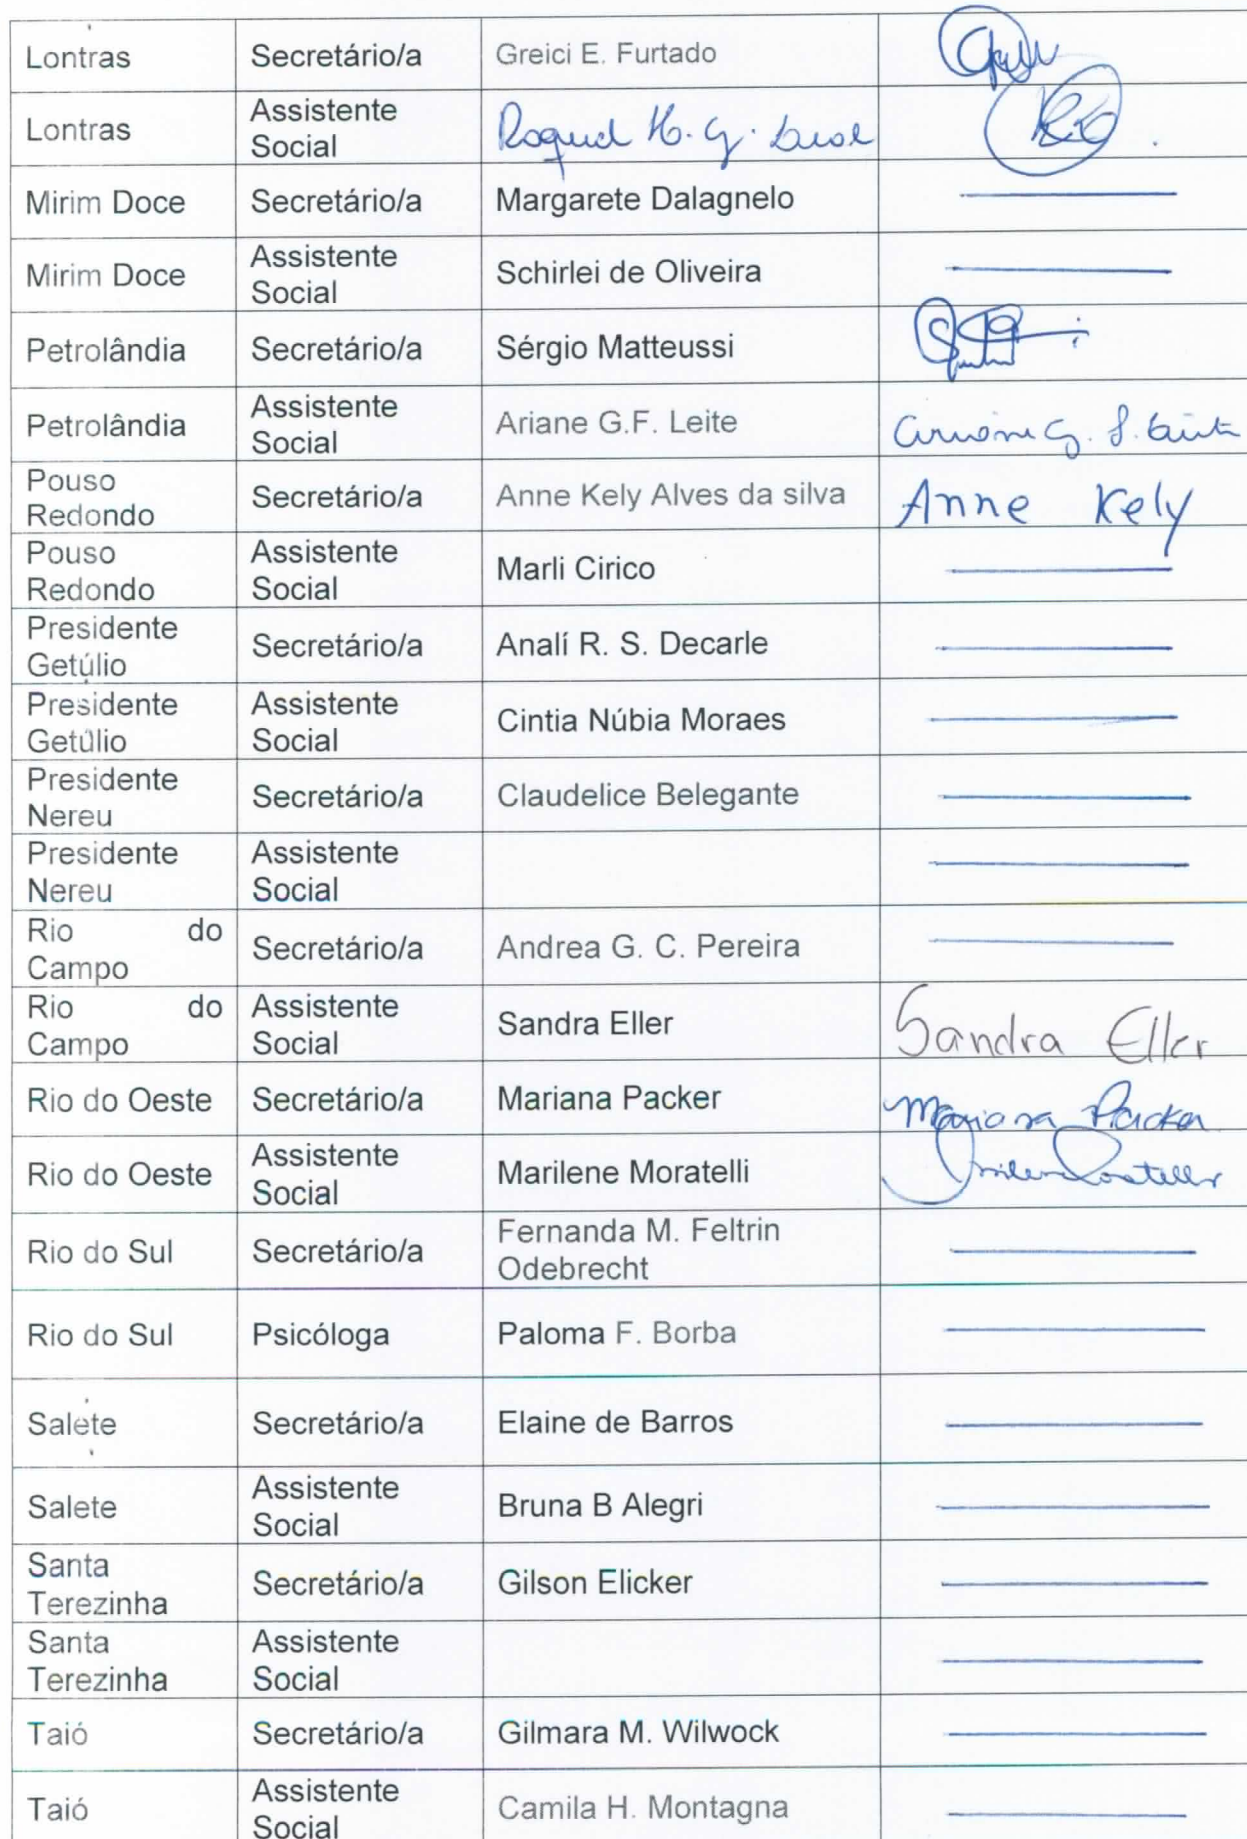 Lontras Secretário/a Greici E. Furtado
Lontras Assistente Social Raquel H. G.
Mirim Doce Secretário/a Margarete Dalagnelo
Mirim Doce Assistente Social Schirlei de Oliveira
Petrolândia Secretário/a Sérgio Matteussi
Petrolândia Assistente Social Ariane G.F. Leite
Pouso Redondo Secretário/a Anne Kely Alves da silva Anne Kely
Pouso Redondo Assistente Social Marli Cirico
Presidente Getúlio Secretário/a Analí R. S. Decarle
Presidente Getúlio Assistente Social Cintia Núbia Moraes
Presidente Nereu Secretário/a Claudelice Belegante
Presidente Nereu Assistente Social
Rio do Campo Secretário/a Andrea G. C. Pereira
Rio do Campo Assistente Social Sandra Eller Sandra Eller
Rio do Oeste Secretário/a Mariana Packer Mariana Packer
Rio do Oeste Assistente Social Marilene Moratelli
Rio do Sul Secretário/a Fernanda M. Feltrin Odebrecht
Rio do Sul Psicóloga Paloma F. Borba
Salete Secretário/a Elaine de Barros
Salete Assistente Social Bruna B Alegri
Santa Terezinha Secretário/a Gilson Elicker
Santa Terezinha Assistente Social
Taió Secretário/a Gilmara M. Wilwock
Taió Assistente Social Camila H. Montagna